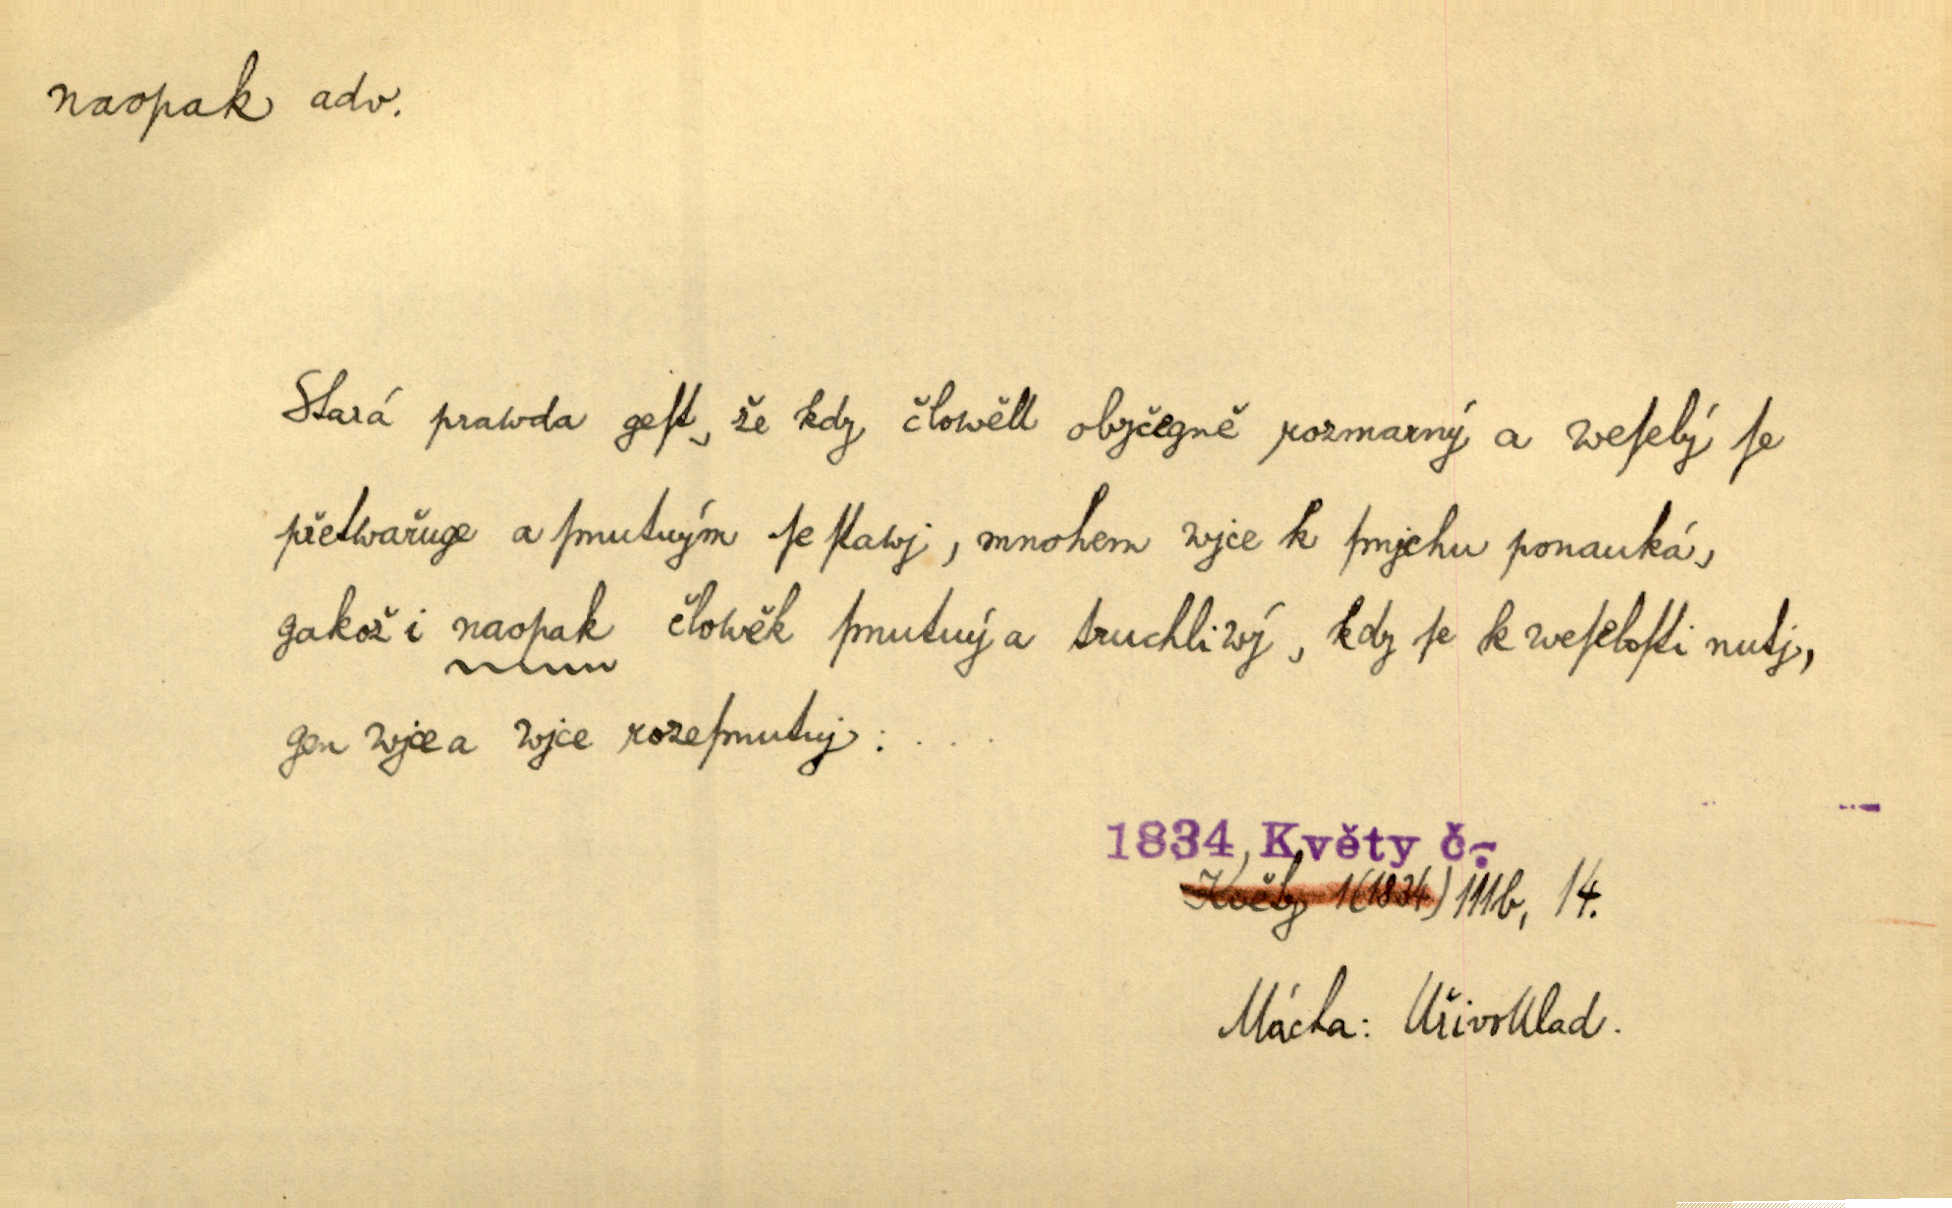 naopak adv.
Stará prawda geſt, že kdy člowěk obyčegně rozmarný a weſelý ſe
přetwařuge a ſmutným ſe ſtawj, mnohem wjce k ſmjchu ponauká,
gakož i naopak člowěk ſmutný a truchliwý, kdy ſe k weſeloſti nutj,
gen wjce a wjce rozeſmutnj: . . . .
1834, Květy č.-
Květy 1(1834) 111b, 14.
Mácha: Křivoklad.